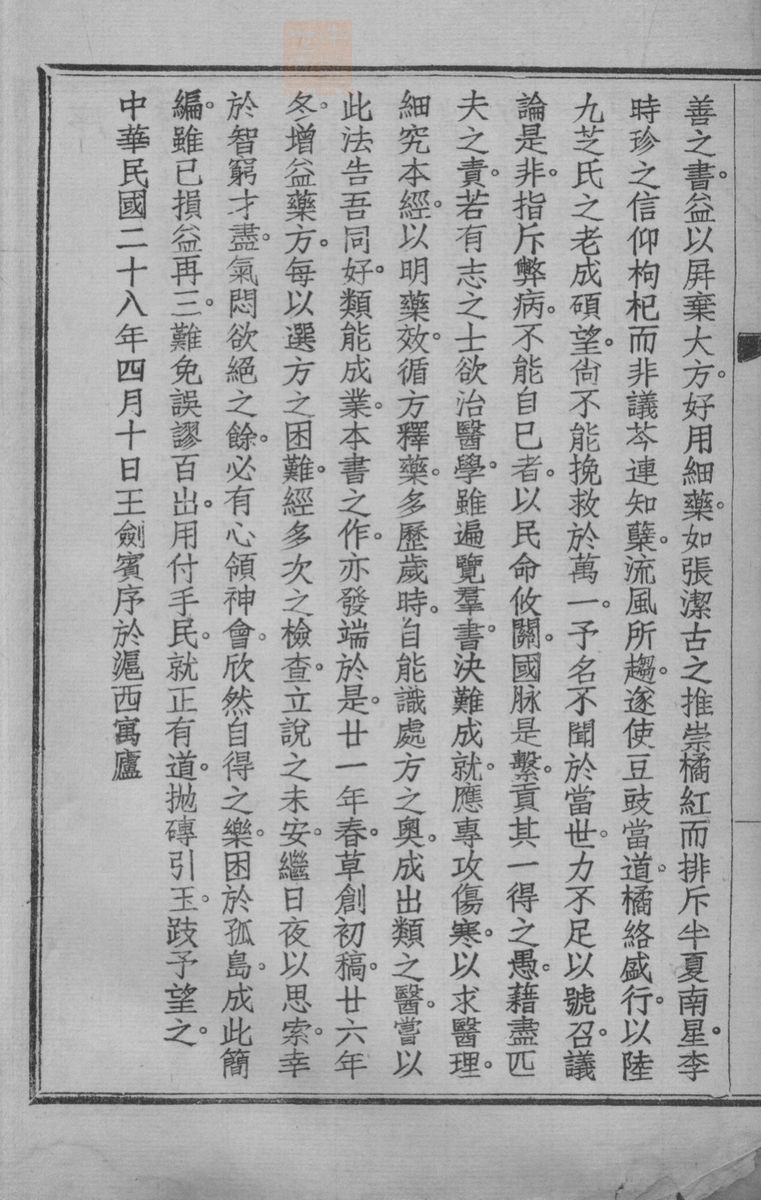 善之書。益以屏棄大方。好用細藥。如張潔古之推崇橘紅而排斥半夏南星。李
時珍之信仰枸杞而非議芩連知蘗。流風所趨。遂使豆豉當道。橘絡盛行。以陸
九芝氏之老成碩望。尙不能挽救於萬一。予名不聞於當世。力不足以號召。議
論是非。指斥弊病。不能自已者。以民命攸關。國脉是繫。貢其一得之愚。藉盡匹
夫之責。若有志之士欲治醫學。雖遍覽羣書。決難成就。應專攻傷寒。以求醫理。
細究本經。以明藥效。循方釋藥。多歷歲時。自能識處方之奧。成出類之醫。嘗以
此法告吾同好。類能成業。本書之作。亦發端於是。廿一年春。草創初稿。廿六年
冬。增益藥方。每以選方之困難。經多次之檢查。立說之未安。繼日夜以思索。幸
於智窮才盡。氣悶欲絕之餘。必有心領神會。欣然自得之樂。困於孤島。成此簡
編。雖已損益再三。難免誤謬百出。用付手民。就正有道。拋磚引玉。跂予望之。
中華民國二十八年四月十日王劍賓序於滬西寓廬